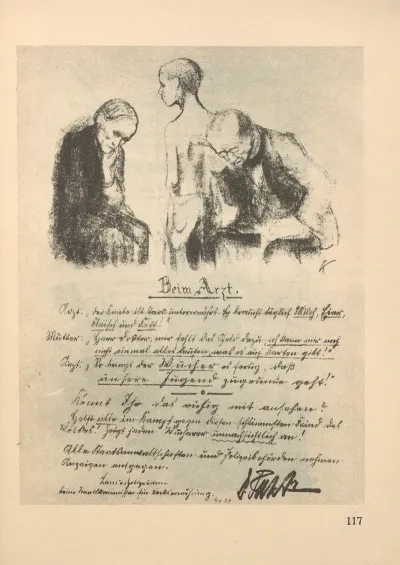 Beim Arzt.
Arzt: „Der Knabe ist stark unterernährt. Er braucht täglich Milch, Eier,
Fleisch und Fett!"
Mutter: „Herr Doktor, mir fehlt das Geld dazu, ich kann mir noch
nicht einmal alles kaufen was es auf Karten gibt!"
Arzt: „So bringt der Wucher es fertig, daß
unsere Jugend zugrunde geht!"
Könnt Ihr das ruhig mit ansehen?
Helft alle im Kampf gegen diesen schlimmsten Feind des
Volkes! Zeigt jeden Wucherer unnachsichtlich an!
Alle Staatsanwaltschaften und Polizeibehörden nehmen
Anzeigen entgegen.
Landespolizeiamt
beim Staatskommissar für Volksernährung.
117